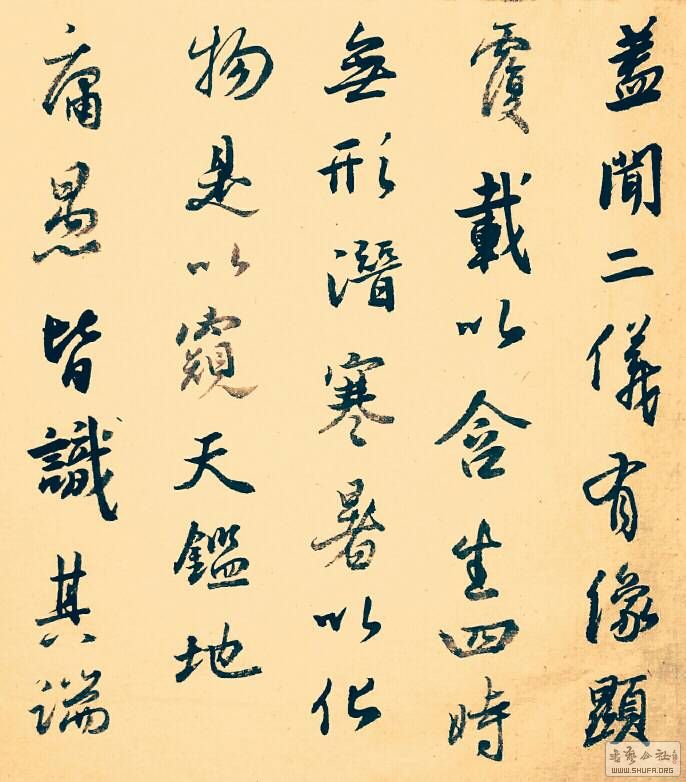 蓋聞二儀有像顯
覆載以含生四時
無形潛寒暑以化
物是以窺天鑑地
庸愚皆識其端
書藝公社
WWW.SHUFA.ORG